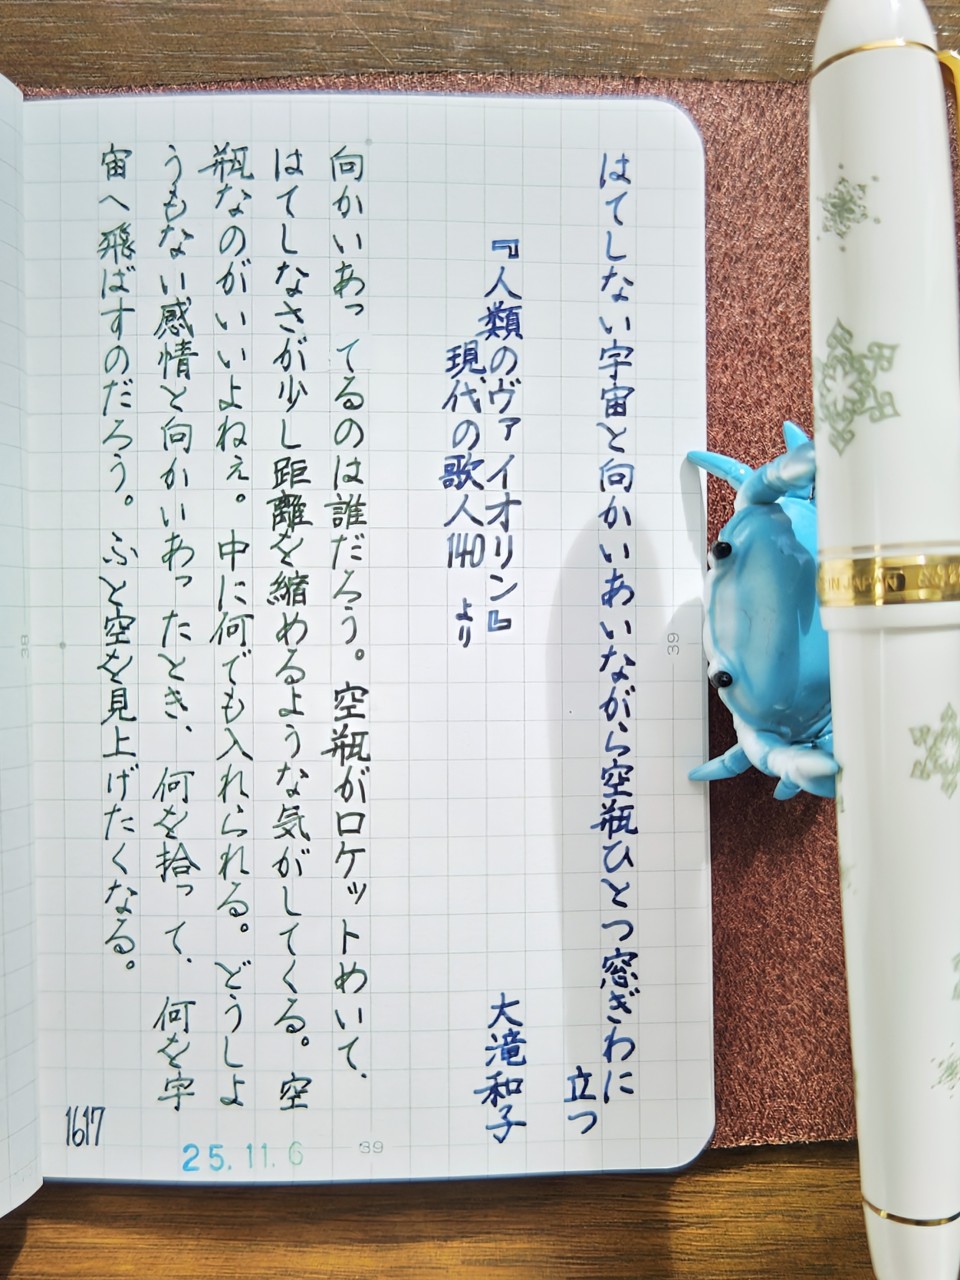 はてしない宇宙と向かいあいながら空瓶ひとつ窓ぎわに
立つ
『人類のヴァイオリン』
大滝和子
現代の歌人140 より
向かいあってるのは誰だろう。空瓶がロケットめいて、
はてしなさが少し距離を縮めるような気がしてくる。空
瓶なのがいいよねぇ。中に何でも入れられる。どうしよ
うもない感情と向かいあったとき、何を拾って、何を宇
宙へ飛ばすのだろう。ふと空を見上げたくなる。
1617
25.11.6
39
39
38
IN JAPAN